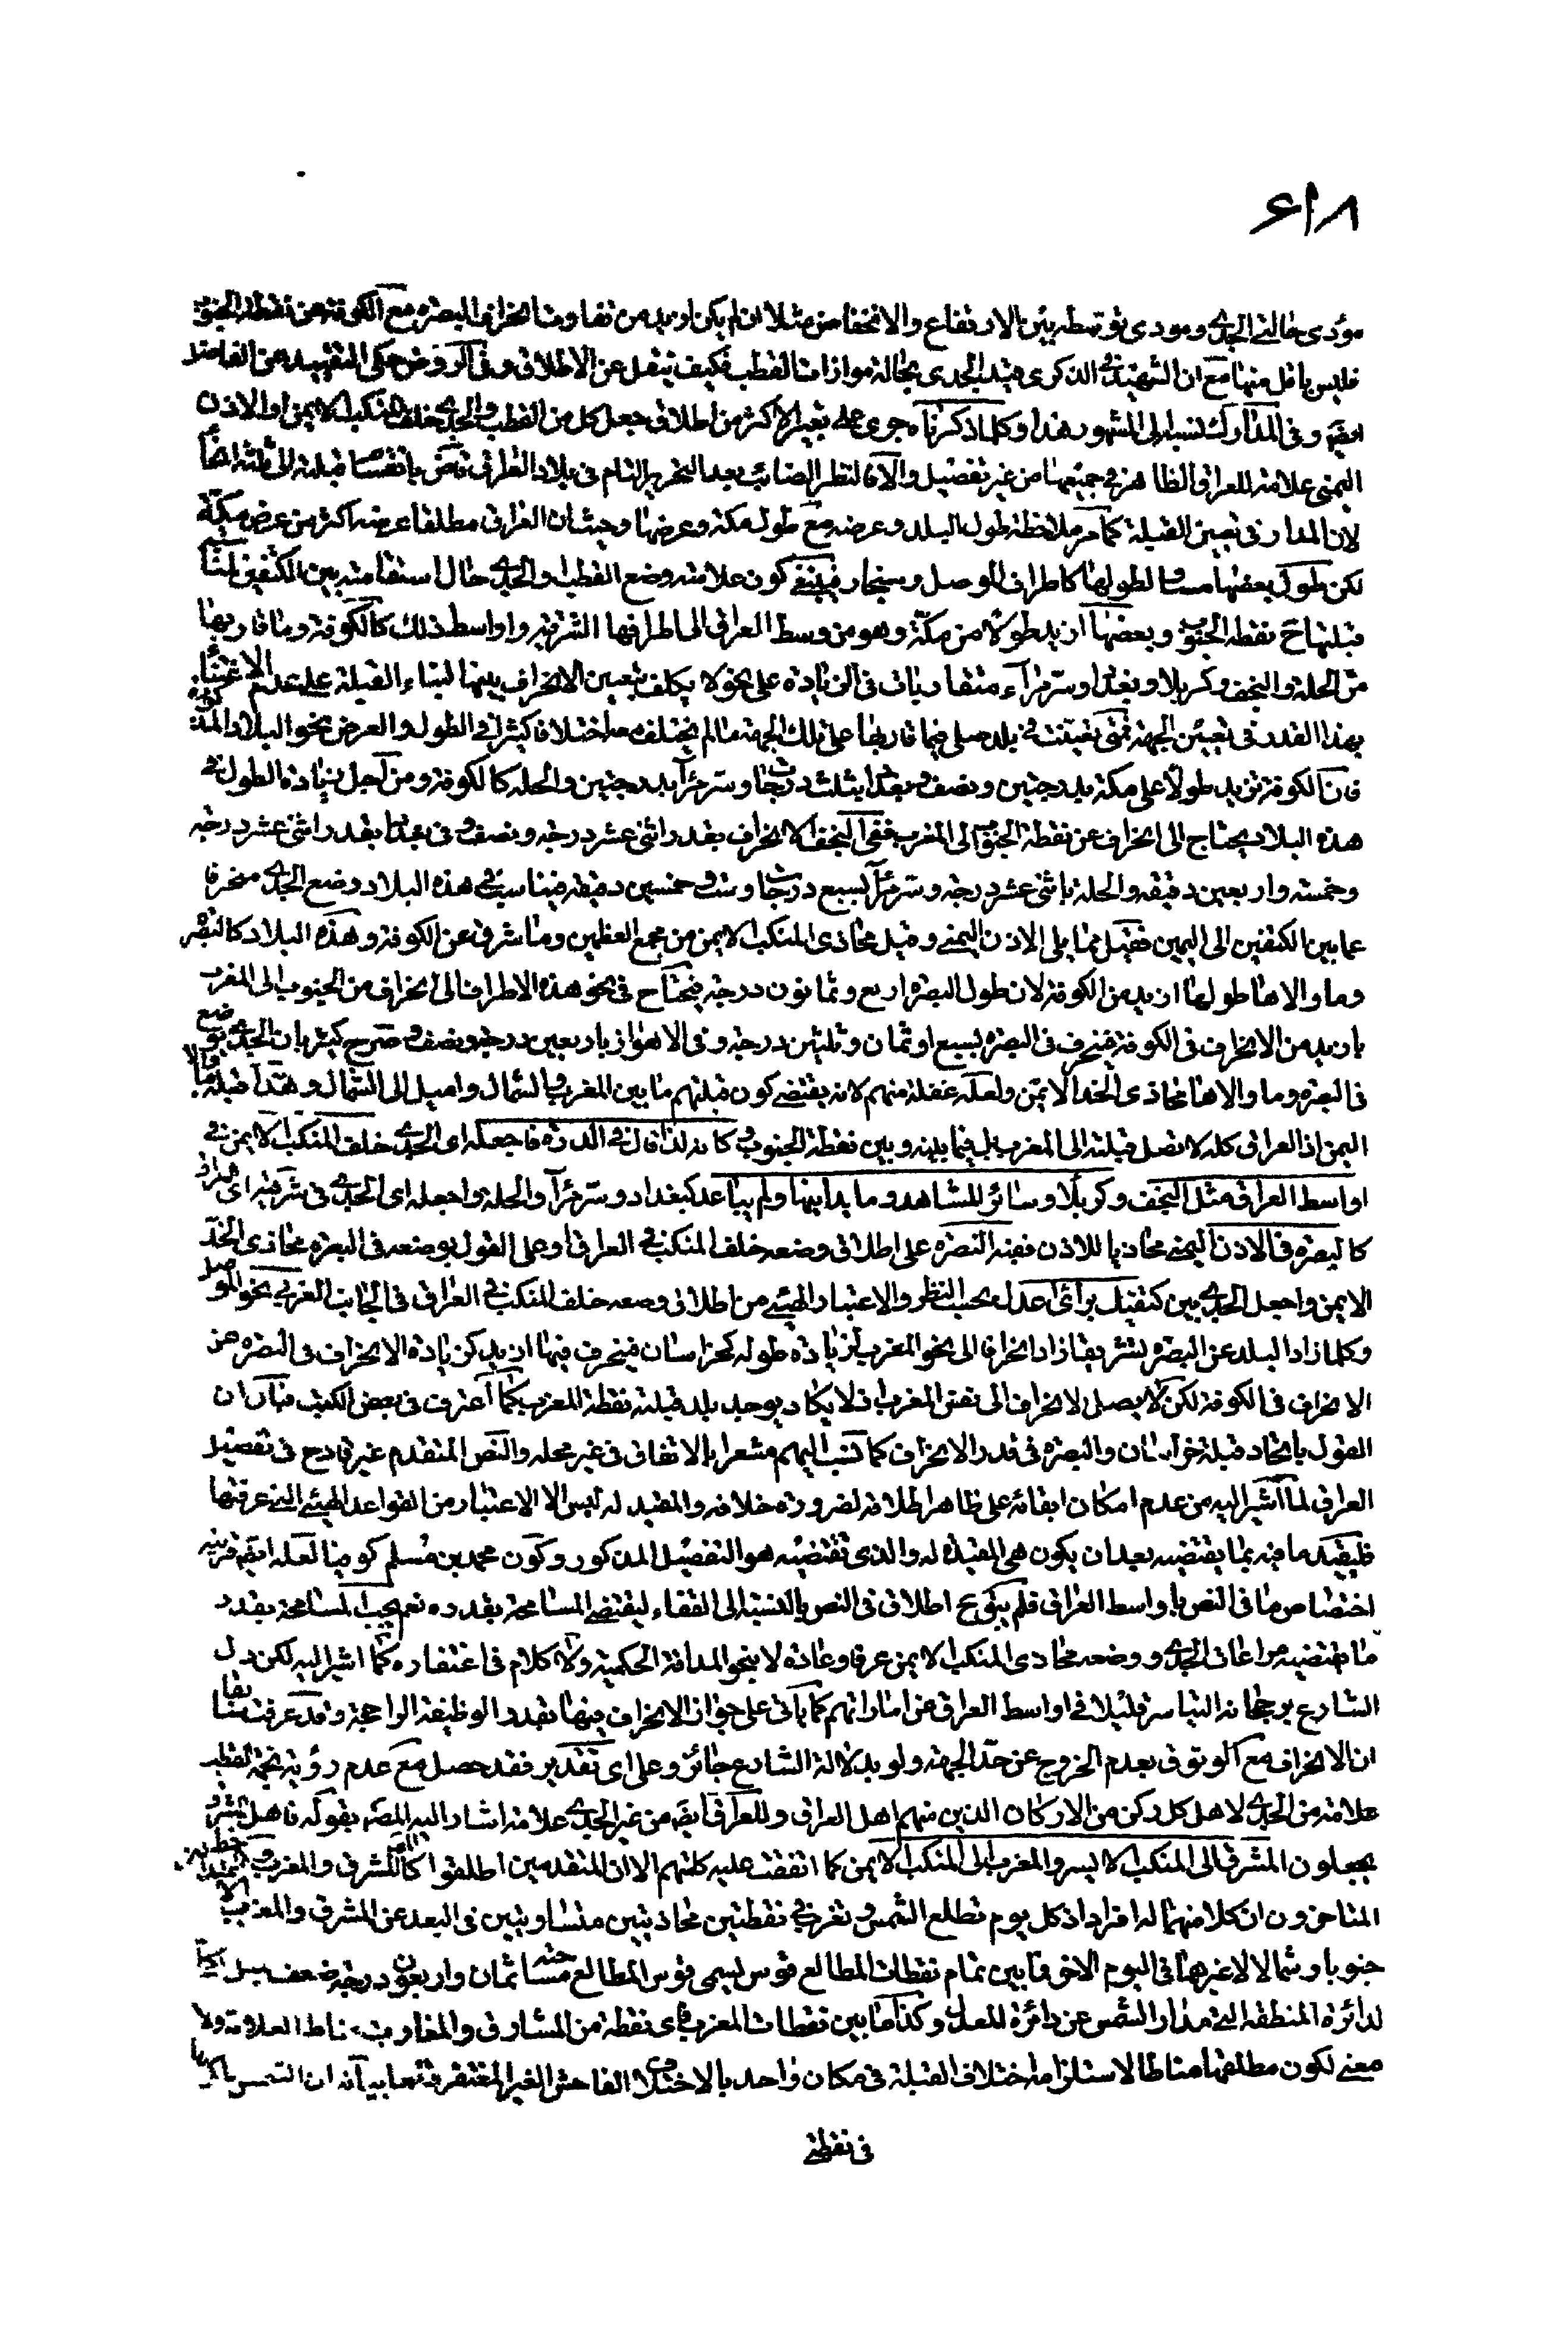 ٦١٨
مؤدى حالتي الجدى ومودى توسطه بين الارتفاع والانخفاض مثلا ان لم يكن ازيد من تفاوت انحراف البصره مع الكوفة عن نقطة الجنوب
فليس باقل منها مع ان الشهيد في الذكرى قيد الجدى بحالة موازاة القطب فكيف ينقل عن الاطلاق وفى الروض حكى التقييد عن الفاضل
ايضا وفى المدارك نسبه الى المشهور هذا وكلما ذكرناه جرى على تعبير الاكثر من اطلاق جعل كل من القطب والجدى خلف المنكب الايمن او الاذن
اليمنى علامة للعراق الظاهر في جميعها من غير تفصيل والا فالنظر الصائب بعد التحرير التام فى بلاد العراق قاض بانقسام قبلته الى ثلثة اقسام
لان المدار فى تعيين القبلة كما مر ملاحظة طول البلد وعرضه مع طول مكة وعرضها وحيث ان العراق مطلقا عرضه اكثر من عرض مكة
لكن طول بعضها مساو لطولها كاطراف الموصل وسنجار فينبغى كون علامته وضع القطب والجدى حال استقامته بين الكتفين لمسامتة
قبلتها ح نقطة الجنوب وبعضها ازيد طولا من مكة وهو من وسط العراق الى اطرافها الشرقية واواسط ذلك كالكوفة وما قاربها
من الحلة والنجف وكربلا وبغداد وسر من رآء متقاربات فى الزيادة على نحو لا يكلف بتعيين الانحراف بينها لبناء القبلة على عدم الاعتناء
بهذا القدر فى تعيين الجهة فمتى تعينت في بلد صلى فيما قاربها على تلك الجهة ما لم يختلف معه اختلافا كثيرا في الطول والعرض نحو البلاد المذكورة
فان الكوفة تزيد طولا على مكة بدرجتين ونصف وبغداد بثلث درجات وسر من رآ بدرجتين والحله كالكوفة ومن اجل زيادة الطول في
هذه البلاد يحتاج الى انحراف عن نقطة الجنوب الى المغرب ففى النجف الانحراف بقدر اثنى عشر درجة ونصف وفى بغداد بقدر اثنى عشر درجة
وخمسة واربعين دقيقه والحلة باثنى عشر درجة وسر من رآ بسبع درجات وست وخمسين دقيقة فيناسب في هذه البلاد وضع الجدى منحرفا
عما بين الكتفين الى اليمين فقيل مما يلى الاذن اليمنى وقيل محاذى المنكب الايمن من مجمع العظمين وما شرق عن الكوفة وهذه البلاد كالبصره
وما والاها طولها ازيد من الكوفة لان طول البصرة اربع وثمانون درجة فيحتاج فى نحو هذه الاطراف الى انحراف من الجنوب الى المغرب
بازيد من الانحراف فى الكوفة فينحرف فى البصره بسبع او ثمان وثلثين درجة وفى الاهواز باربعين درجة ونصف وصرح كثير بان الجدى يوضع
فى البصره وما والاها محاذى الخد الايمن ولعله غفلة منهم لانه يقتضى كون قبلتهم ما بين المغرب والشمال واميل الى الشمال وهذا قبلة ما والا
اليمن اذ العراق كله لا تصل قبلته الى المغرب بل فيما بينه وبين نقطة الجنوب وكانه لذا قال في الدرة فاجعله اى الجدى خلف المنكب الايمن في
اواسط العراق مثل النجف وكربلا وسائر المشاهد وما يدانيها ولم يباعد كبغداد وسر من رآ والحله واجعله اى الجدى فى شرقيه اى العراق
كالبصره فى الاذن اليمنى محاذيا للاذن ففيه النصره على اطلاق وضعه خلف المنكب في العراق وعلى القول بوضعه فى البصره محاذى الخد
الايمن واجعل الجدى بين كتفيك براى اعدل بحسب النظر والاعتبار الهيئى من اطلاق وضعه خلف المنكب في العراق فى الجانب الغربى نحو الموصل
وكلما زاد البلد عن البصره تشريقا زاد انحرافا الى نحو المغرب لزيادة طوله كخراسان فينحرف فيها ازيد من زيادة الانحراف فى البصره عن
الانحراف فى الكوفة لكن لا يصل الانحراف الى نفس المغرب اذ لا يكاد يوجد بلد قبلته نقطة المغرب كما اعترف فى بعض الكتب فبان ان
القول باتحاد قبلة خراسان والبصره فى قدر الانحراف كما نسب اليهم مشعرا بالاتفاق فى غير محله والنص المتقدم غير قادح فى تفصيل
العراق لما اشير اليه من عدم امكان ابقائه على ظاهر اطلاقه لضرورة خلافه والمقيد له ليس الا الاعتبار من القواعد الهيئيه التي عرفتها
فليقيد ما فيه بما يقتضيه بعد ان يكون هى المقيدة له والذى تقتضيه هو التفصيل المذكور وكون محمد بن مسلم كوفيا لعله ايضا قرينة
اختصاص ما فى النص باواسط العراق فلم يبق ح اطلاق فى النص بالنسبة الى الفقاء ليقتضى المسامحة بقدره نعم يجب المسامحة بقدر
ما يقتضيه مراعاة الجدى ووضعه محاذى المنكب الايمن عرفا وعادة لا بنحو المداقة الحكمية ولا كلام فى اغتفاره كما اشير اليه لكن دل
الشارع برجحانه التياسر قليلا فى اواسط العراق عن اماراتهم كما ياتى على جواز الانحراف فيها بقدر الوظيفة الراجحة وقد عرفت سابقا
ان الانحراف مع الوثوق بعدم الخروج عن حد الجهة ولو بدلالة الشارع جائز وعلى اى تقدير فقد حصل مع عدم رؤية نجمة القطب
علامة من الجدى لاهل كل ركن من الاركان الذين منهم اهل العراق وللعراق ايضا من غير الجدى علامة اشار اليه المصنف بقوله فاهل المشرق
يجعلون المشرق الى المنكب الايسر والمغرب الى المنكب الايمن كما اتفقت عليه كلمتهم الا ان المتقدمين اطلقوا كالمصنف المشرق والمغرب
المتاخرون ان كلا منهما له افراد اذ كل يوم تطلع الشمس وتغرب في نقطتين محاذيتين متساويتين فى البعد عن المشرق والمغرب
جنوبا وشمالا لا غيرهما فى اليوم الاخر فما بين تمام نقطات المطالع قوس يسمى قوس المطالع مساحته ثمان واربعون درجة ضعف ميل
لدائرة المنطقة التي مدار الشمس عن دائرة المعدل وكذا ما بين نقطات المغرب فاى نقطة من المشارق والمغارب مناط العلامة ولا
معنى لكون مطلقها مناطا لاستلزامه اختلاف القبلة فى مكان واحد بالاختلاف الفاحش الغير المغتفر بيانه ان الشمس
فى نقطة